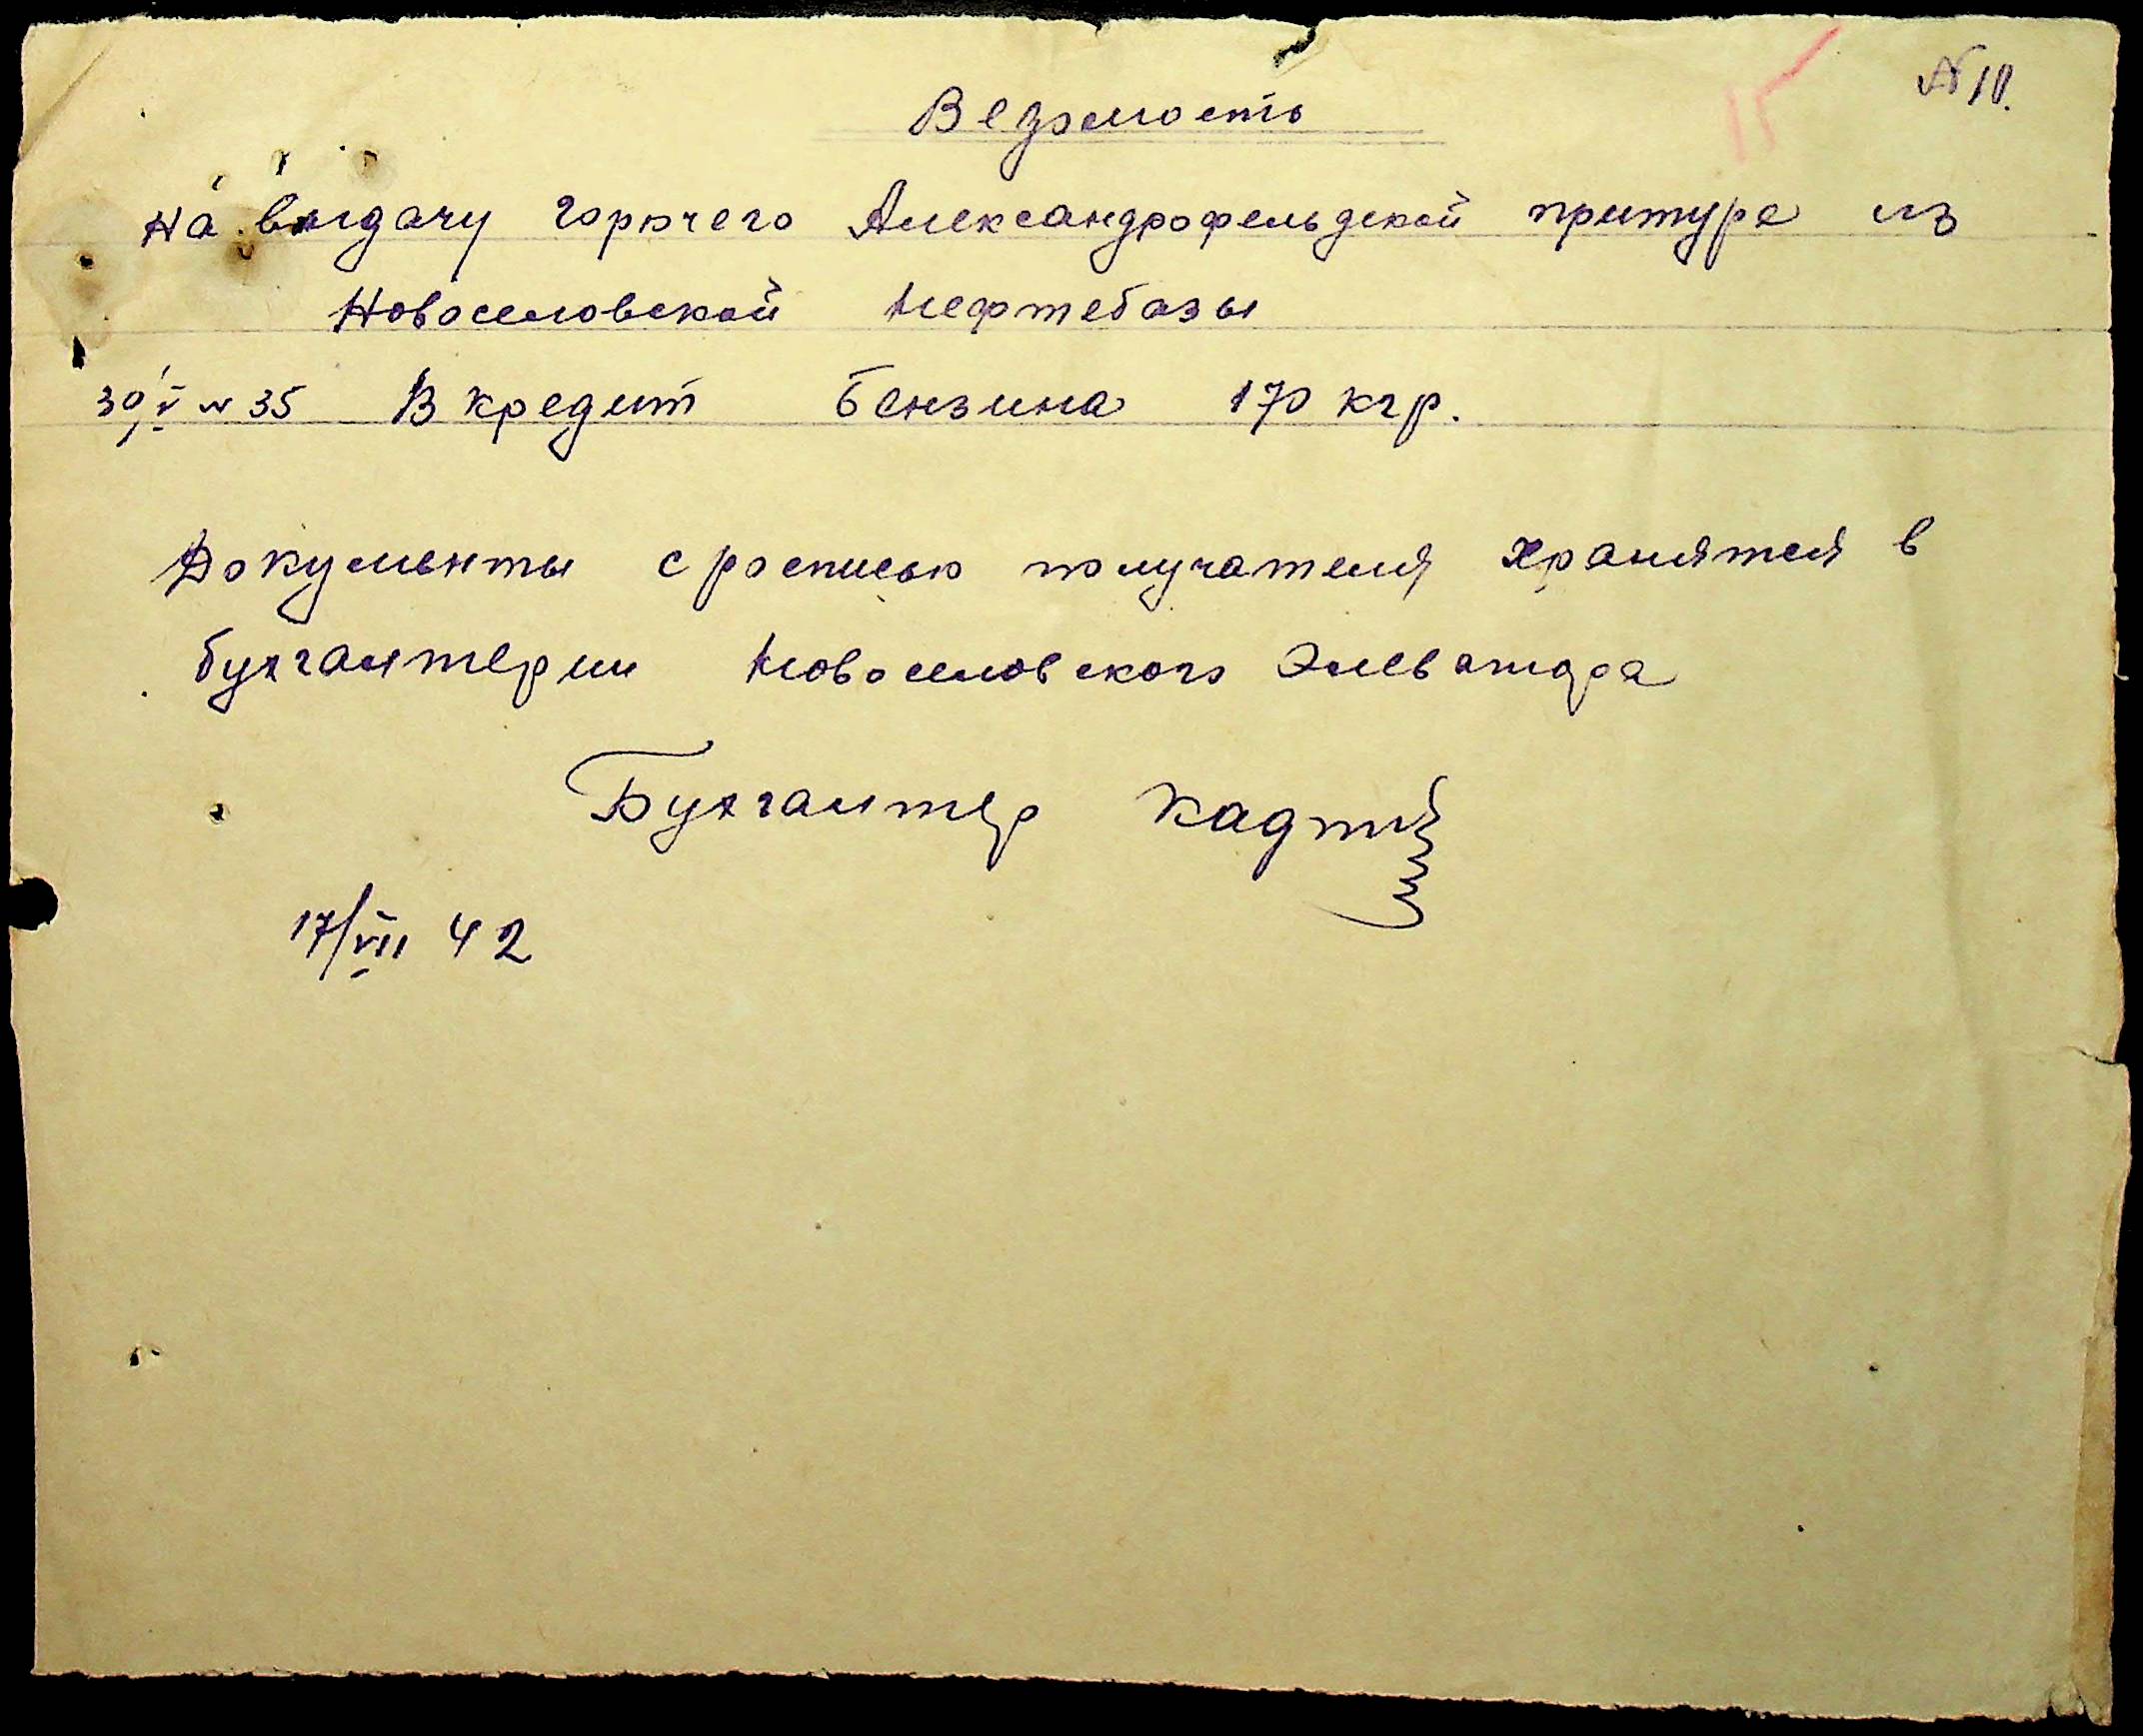 15 N 10.
Ведомость
на выдачу горючего Александрофельдской притура из
Новоселовской Нефтебазы
30/V N 35 В кредит Бензина 170 кгр.
Документы с росписью получателя хранятся в
бухгантерии Новоселовского Элеватора
Бухгантер
17/VII 42